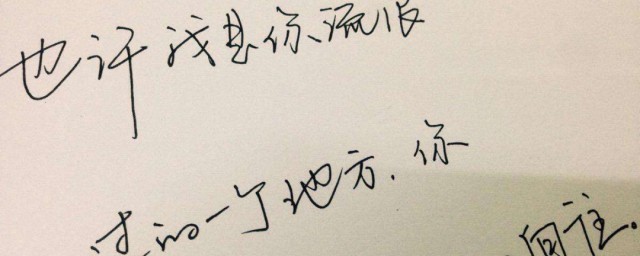 也许我是你流浪
过的一个地方.你
向往.